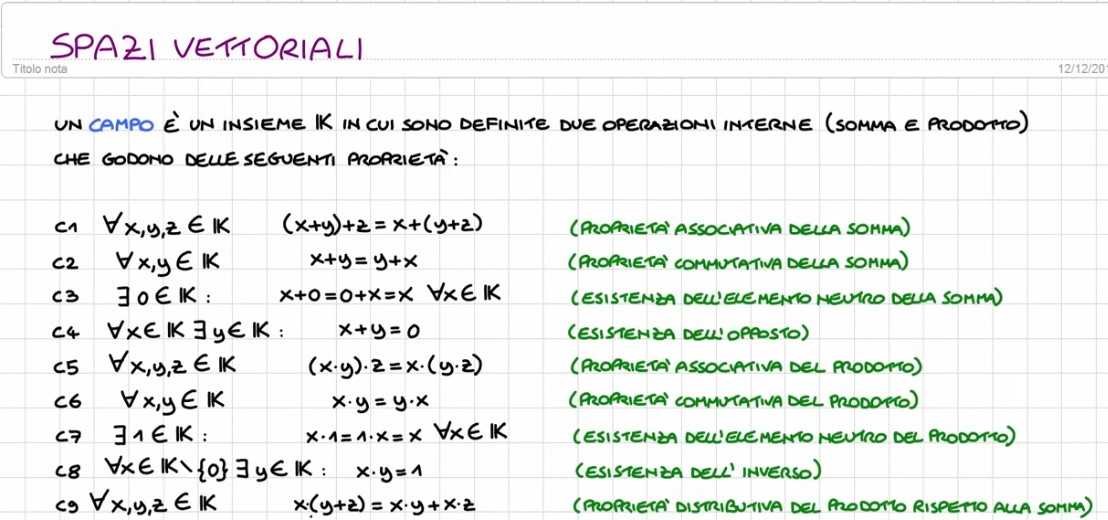 SPAZI VETTORIALI
Titolo nota 12/12/201
UN CAMPO È UN INSIEME 𝕂 IN CUI SONO DEFINITE DUE OPERAZIONI INTERNE (SOMMA E PRODOTTO)
CHE GODONO DELLE SEGUENTI PROPRIETÀ:
C1 ∀x,y,z ∈ 𝕂 (x+y)+z = x+(y+z) (PROPRIETÀ ASSOCIATIVA DELLA SOMMA)
C2 ∀x,y ∈ 𝕂 x+y = y+x (PROPRIETÀ COMMUTATIVA DELLA SOMMA)
C3 ∃ 0 ∈ 𝕂 : x+0 = 0+x = x ∀x ∈ 𝕂 (ESISTENZA DELL'ELEMENTO NEUTRO DELLA SOMMA)
C4 ∀x ∈ 𝕂 ∃ y ∈ 𝕂 : x+y = 0 (ESISTENZA DELL'OPPOSTO)
C5 ∀x,y,z ∈ 𝕂 (x·y)·z = x·(y·z) (PROPRIETÀ ASSOCIATIVA DEL PRODOTTO)
C6 ∀x,y ∈ 𝕂 x·y = y·x (PROPRIETÀ COMMUTATIVA DEL PRODOTTO)
C7 ∃ 1 ∈ 𝕂 : x·1 = 1·x = x ∀x ∈ 𝕂 (ESISTENZA DELL'ELEMENTO NEUTRO DEL PRODOTTO)
C8 ∀x ∈ 𝕂\{0} ∃ y ∈ 𝕂 : x·y = 1 (ESISTENZA DELL'INVERSO)
C9 ∀x,y,z ∈ 𝕂 x·(y+z) = x·y+x·z (PROPRIETÀ DISTRIBUTIVA DEL PRODOTTO RISPETTO ALLA SOMMA)